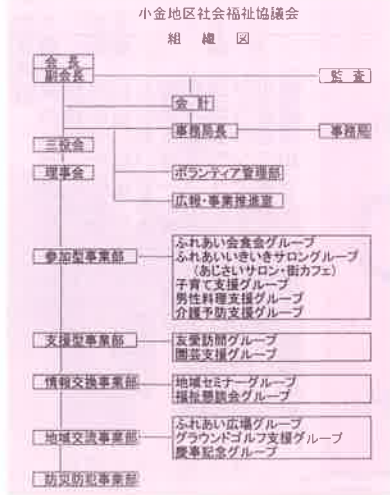 小金地区社会福祉協議会
組織図
会長
副会長
監査
会計
事務局長
事務局
三役会
理事会
ボランティア管理部
広報・事業推進室
参加型事業部
ふれあい会食会グループ
ふれあいいきいきサロングループ
(あじさいサロン・街カフェ)
子育て支援グループ
男性料理支援グループ
介護予防支援グループ
支援型事業部
友愛訪問グループ
園芸支援グループ
情報交換事業部
地域セミナーグループ
福祉懇談会グループ
地域交流事業部
ふれあい広場グループ
グラウンドゴルフ支援グループ
慶事記念グループ
防災防犯事業部